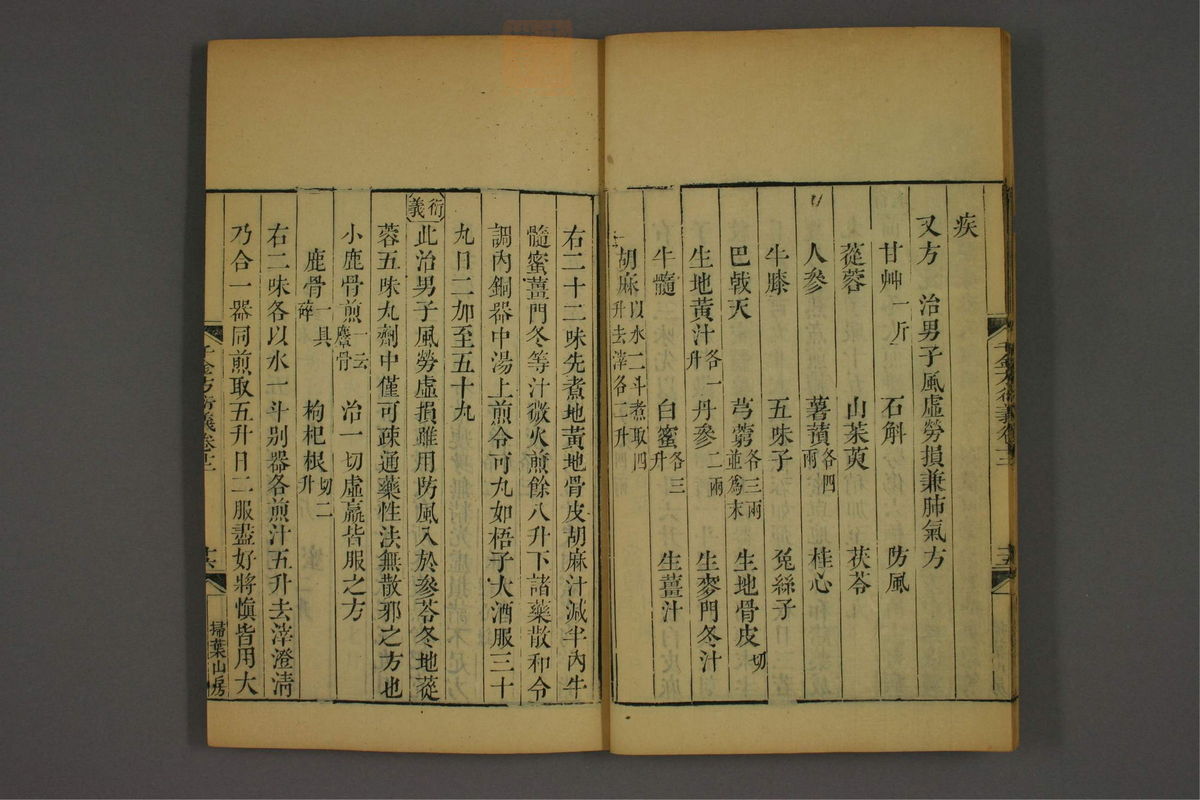 疾
又方　治男子風虛勞損兼肺氣方
甘艸一斤　石斛　防風
蓯蓉　山茱萸　茯苓
人參　薯蕷各四兩　桂心
牛膝　五味子　兔絲子
巴戟天　芎藭各三兩並為末　生地骨皮切
生地黃汁各一升　丹參二兩　生麥門冬汁
牛髓　白蜜各三升　生薑汁
胡麻以水二斗煮取四升去滓各二升
右二十二味先煮地黃地骨皮胡麻汁減半內牛
髓蜜薑門冬等汁微火煎餘八升下諸藥散和令
調內銅器中湯上煎令可丸如梧子大酒服三十
丸日二加至五十丸
衍義 此治男子風勞虛損雖用防風入於參苓冬地蓯
蓉五味丸劑中僅可疎通藥性決無散邪之方也
小鹿骨煎一云麞骨　治一切虛羸皆服之方
鹿骨一具碎　枸杞根切二升
右二味各以水一斗別器各煎汁五升去滓澄清
乃合一器同煎取五升日二服盡好將慎皆用大
千金方衍義卷十二　十六　掃葉山房